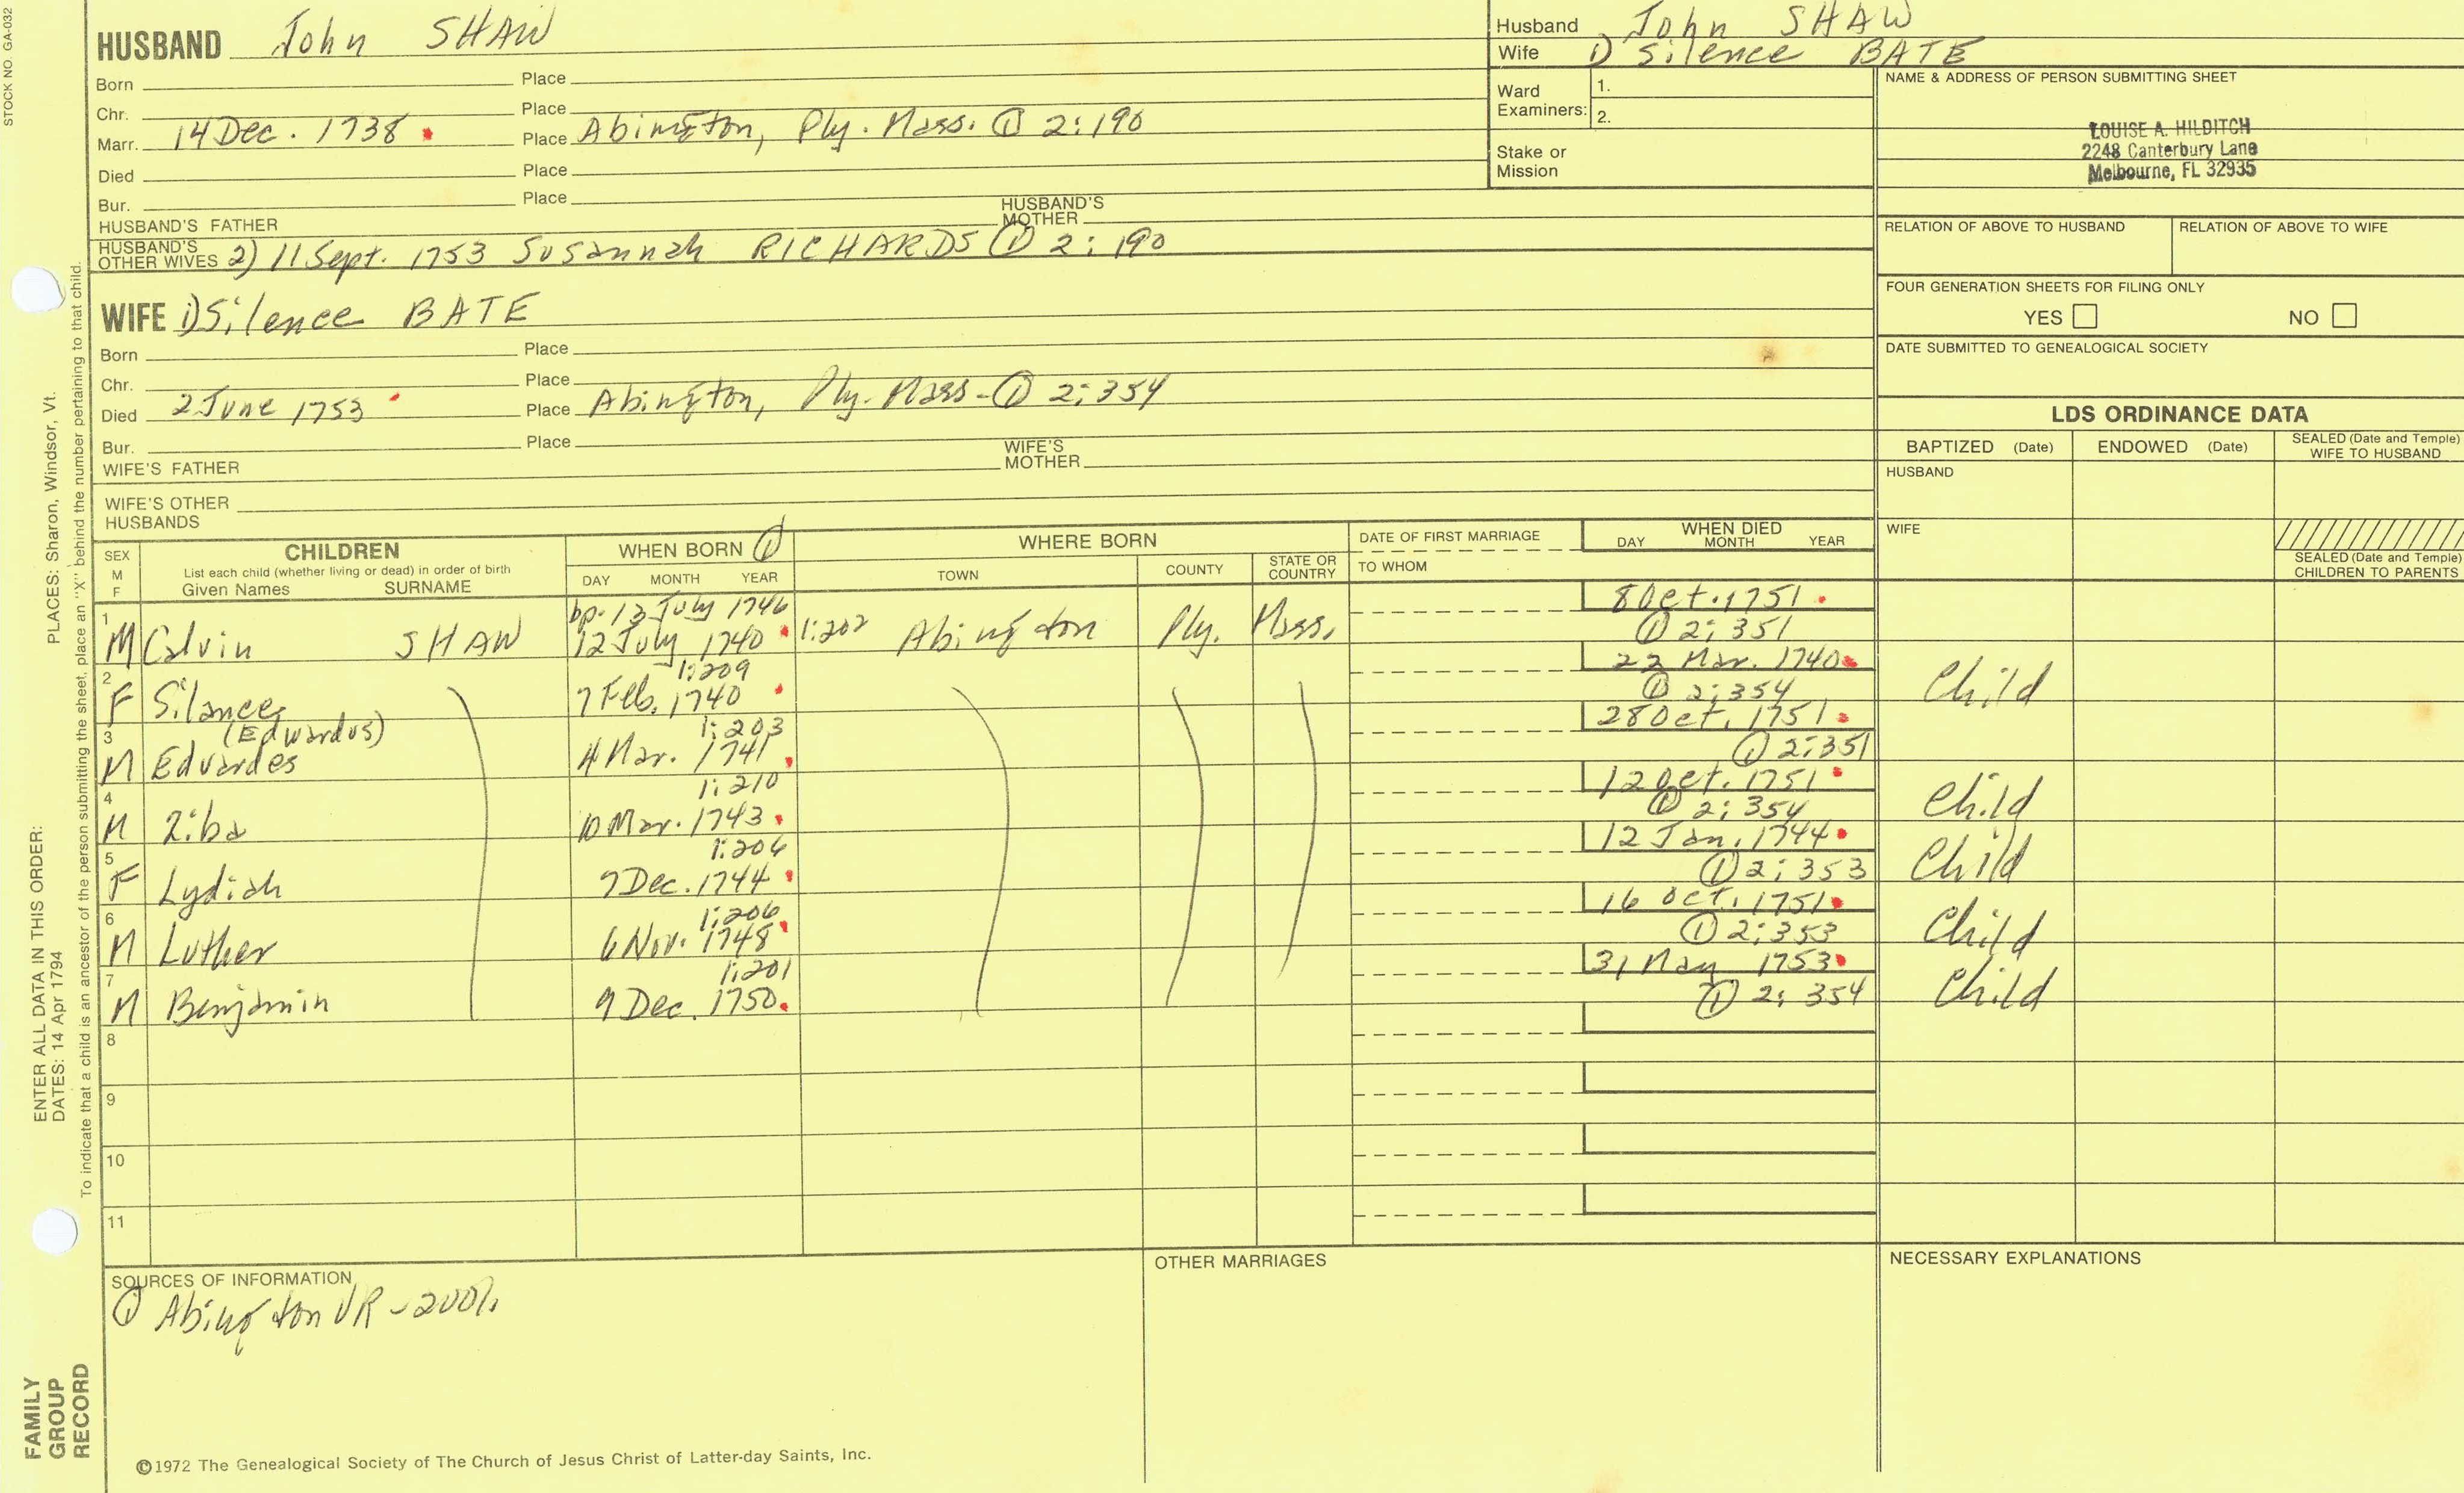 STOCK NO. GA-032
HUSBAND John SHAW
Born Place
Chr. Place
Marr. 14 Dec. 1738 Place Abington, Ply. Mass. ① 2:190
Died Place
Bur. Place
HUSBAND'S FATHER HUSBAND'S MOTHER
HUSBAND'S OTHER WIVES 2) 11 Sept. 1753 Susannah RICHARDS ① 2:190
WIFE 1) Silence BATE
Born Place
Chr. Place
Died 2 June 1753 Place Abington, Ply. Mass - ① 2:354
Bur. Place
WIFE'S FATHER WIFE'S MOTHER
WIFE'S OTHER HUSBANDS
Husband John SHAW
Wife 1) Silence BATE
Ward Examiners: 1.
2.
Stake or Mission
NAME & ADDRESS OF PERSON SUBMITTING SHEET
LOUISE A. HILDITCH
2248 Canterbury Lane
Melbourne, FL 32935
RELATION OF ABOVE TO HUSBAND RELATION OF ABOVE TO WIFE
FOUR GENERATION SHEETS FOR FILING ONLY
YES NO
DATE SUBMITTED TO GENEALOGICAL SOCIETY
LDS ORDINANCE DATA
BAPTIZED (Date) ENDOWED (Date) SEALED (Date and Temple) WIFE TO HUSBAND
HUSBAND
WIFE
SEALED (Date and Temple) CHILDREN TO PARENTS
SEX M F
CHILDREN
List each child (whether living or dead) in order of birth
Given Names SURNAME
WHEN BORN ①
DAY MONTH YEAR
WHERE BORN
TOWN COUNTY STATE OR COUNTRY
DATE OF FIRST MARRIAGE
TO WHOM
WHEN DIED
DAY MONTH YEAR
bp. 13 July 1746 8 Oct. 1751
1 M Calvin SHAW 12 July 1740 1:202 Abington Ply. Mass. ① 2:351
1:209 22 Mar. 1740
2 F Silance 7 Feb. 1740 ① 2:354 Child
(Edwardus) 1:203 28 Oct. 1751
3 M Edvardes 4 Mar. 1741 ① 2:351
1:210 12 Oct. 1751
4 M Ziba 10 Mar. 1743 ① 2:354 Child
1:206 12 Jan. 1744
5 F Lydiah 7 Dec. 1744 ① 2:353 Child
1:206 16 Oct. 1751
6 M Luther 6 Nov. 1748 ① 2:353 Child
1:201 31 May 1753
7 M Benjamin 9 Dec. 1750 ① 2:354 Child
8
9
10
11
SOURCES OF INFORMATION
① Abington VR - 2 vol.
OTHER MARRIAGES
NECESSARY EXPLANATIONS
©1972 The Genealogical Society of The Church of Jesus Christ of Latter-day Saints, Inc.
FAMILY GROUP RECORD
ENTER ALL DATA IN THIS ORDER: PLACES: Sharon, Windsor, Vt.
DATES: 14 Apr 1794
To indicate that a child is an ancestor of the person submitting the sheet, place an "X" behind the number pertaining to that child.